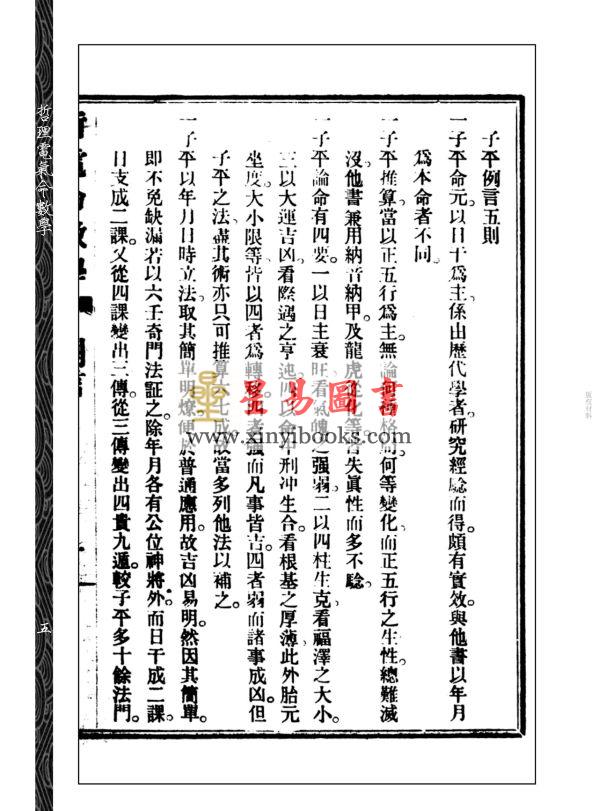 子平例言五則
一子平命元以日干爲主。係出歷代學者研究經驗而得。頗有實效。與他書以年月
爲本命者不同。
一子平推算。當以正五行爲主。無論何格。何等變化。而正五行之生性。總難滅
沒。他書兼用納音納甲及龍虎從化等。皆失眞性而多不驗。
一子平論命有四要。一以日主衰旺看氣魄之强弱。二以四柱生克看福澤之大小。
三以大運吉凶看際遇之亨迍。四以命中刑冲生合。看根基之厚薄。此外胎元
坐度。大小限等。皆以四者爲轉移。四者强而凡事皆吉。四者弱而諸事成凶。但
子平之法。盡其術亦只可推算六七成。故當多列他法以補之。
一子平以年月日時立法。取其簡單明燎。便於普通應用。故吉凶易明。然因其簡單。
即不免缺漏。若以六壬奇門法証之。除年月各有公位神將外。而日干成二課。
日支成二課。又從四課變出三傳。從三傳變出四貴九遁。較子平多十餘法門。
哲理電氣命數學
五
星易圖書
www.xinyibooks.com
版權材料